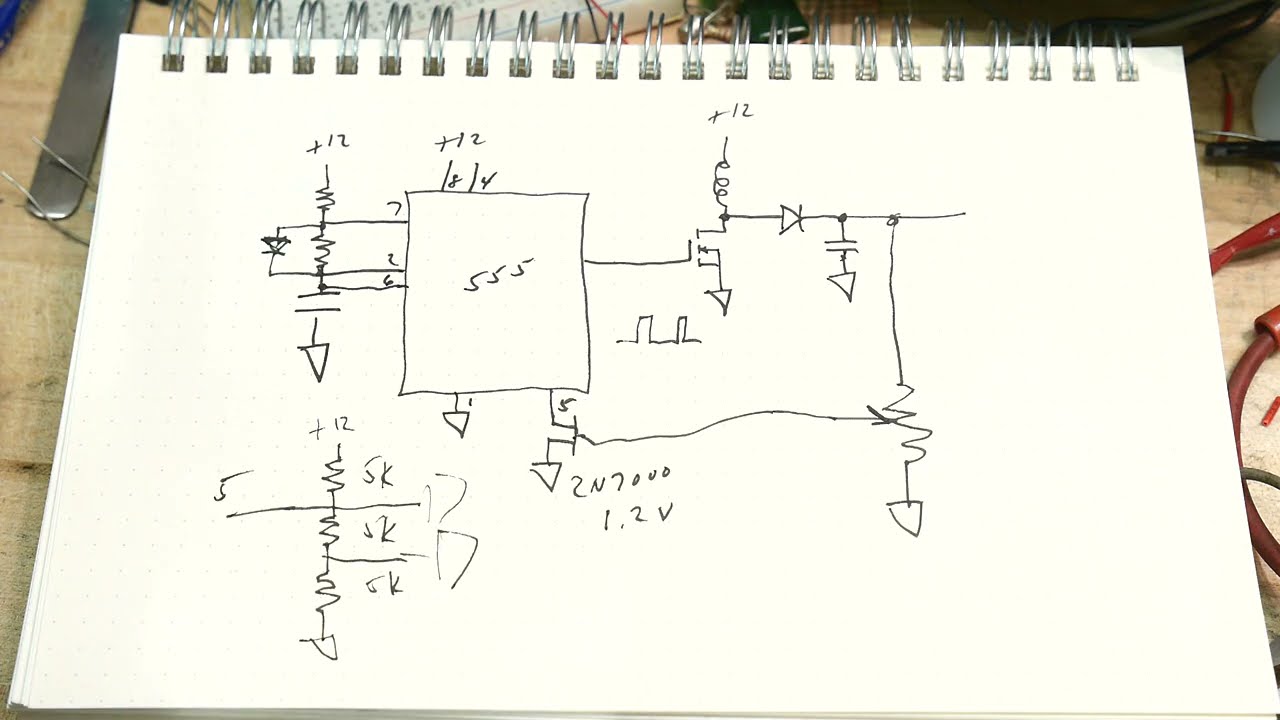 +12
+12
+12
8 4
7
2
6
555
1
5
2N7000
1.2V
+12
5
5K
5K
5K